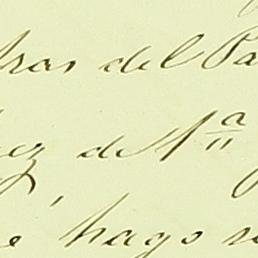 tras del Pa
ez de 1ª
e hago s